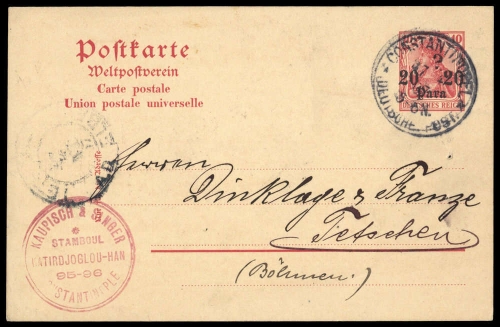 Postkarte
Weltpostverein
Carte postale
Union postale universelle
10
20 20
Para
CONSTANTINOPEL
DEUTSCHE POST
Herren
Dinklage & Franze
Tetschen
(Böhmen.)
KAUPISCH & SINGER
STAMBOUL
KATIRDJOGLOU-HAN
95-96
CONSTANTINOPLE